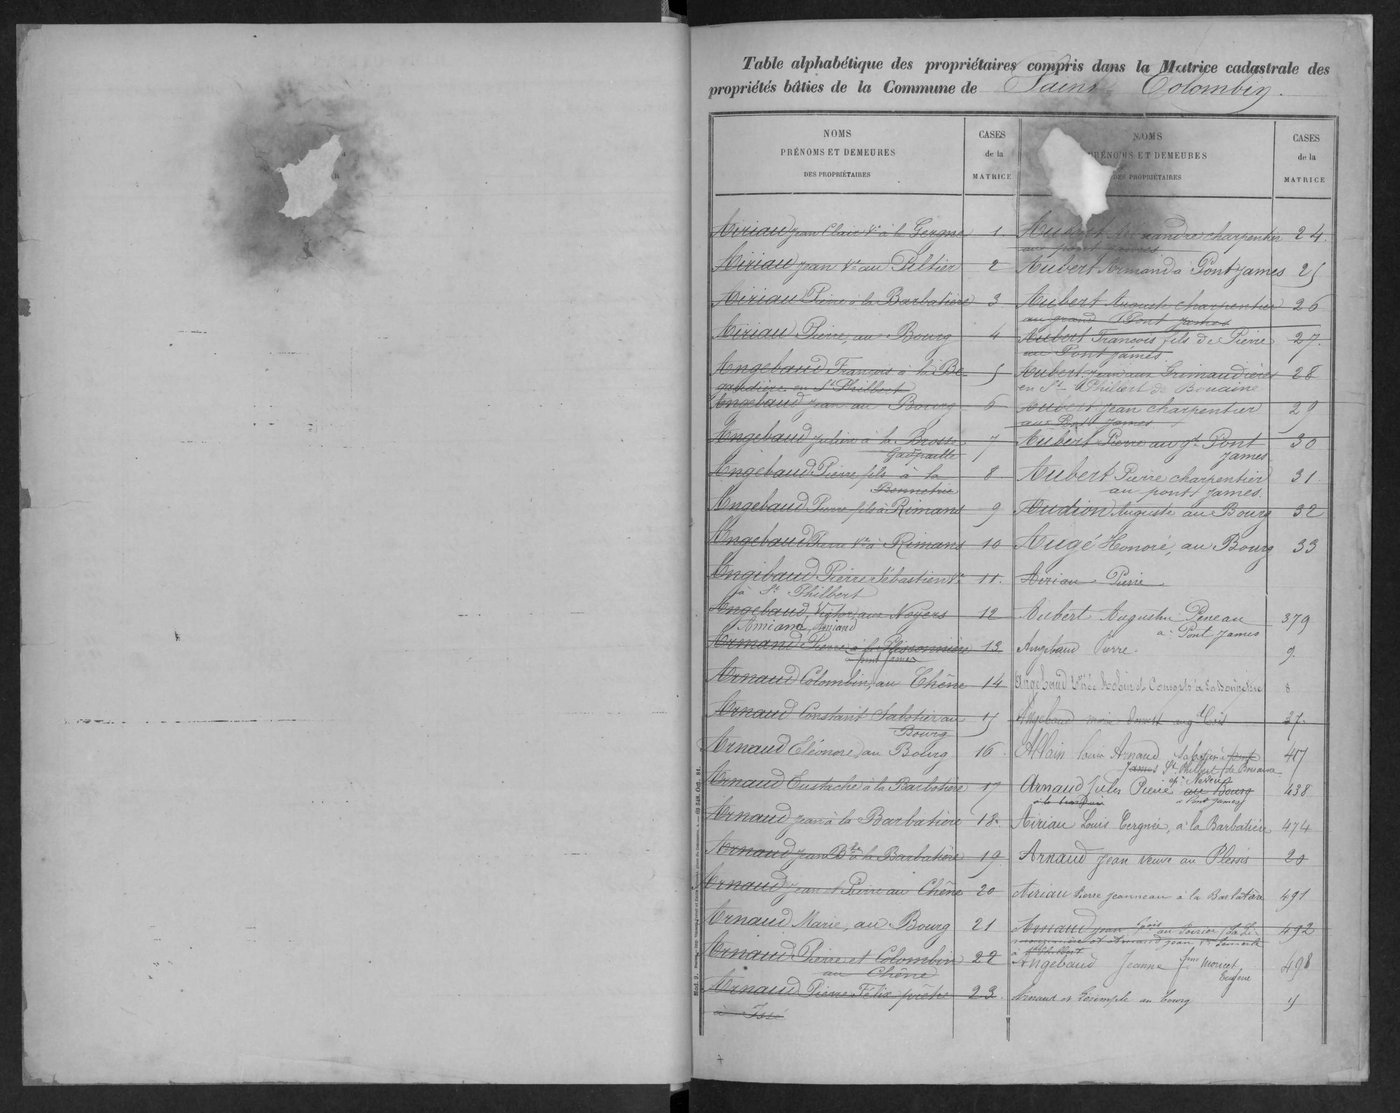 Table alphabétique des propriétaires compris dans la Matrice cadastrale des
propriétés bâties de la Commune de Saint Colombin.
NOMS
PRÉNOMS ET DEMEURES
DES PROPRIÉTAIRES
CASES
de la
MATRICE
Airiau Jean Clair Vve à la Gergue 1
Airiau Jean Vve au Peltier 2
Airiau Pierre à la Barbatière 3
Airiau Pierre, au Bourg 4
Angebaud François à la Be- 5
gaudière en St Philbert
Angebaud Jean au Bourg 6
Angebaud Julien à la Brosse 7
Angebaud Pierre fils à la 8
Bonnetrie
Angebaud Pierre fils à Rimans 9
Angebaud Pierre Vve à Rimans 10
Angebaud Pierre Sébastien Vve 11
à St Philbert
Angebaud, Victor, aux Noyers 12
Amiand
Armand Pierre à la 13
à pont James
Arnaud Colombin, au Chêne 14
Arnaud Constant Sabotier au 15
Bourg
Arnaud Eléonore au Bourg 16
Arnaud Eustache à la Barbatière 17
Arnaud Jean à la Barbatière 18
Arnaud Jean Bte à la Barbatière 19
Arnaud Jean et Pierre au Chêne 20
Arnaud Marie, au Bourg 21
Arnaud Pierre et Colombin 22
au Chêne
Arnaud Pierre Félix prêtre 23
à Issé
NOMS
PRÉNOMS ET DEMEURES
DES PROPRIÉTAIRES
CASES
de la
MATRICE
Aubert Alexandre charpentier 24
au pont James
Aubert Armand à Pont James 25
Aubert August charpentier 26
au grand Pont James
Aubert François fils de Pierre 27
au Pont James
Aubert Jean aux Grimaudières 28
en St Philbert de Bouaine
Aubert Jean charpentier 29
au Pont James
Aubert Pierre au gd Pont 30
James
Aubert Pierre charpentier 31
au pont James
Audion Auguste au Bourg 32
Augé Honoré, au Bourg 33
Airiau Pierre
Aubert Augustin Péneau 379
à Pont James
Angebaud Pierre 9
Angebaud Vve née Robin et Consorts à la Bonnetrie 8
Angebaud 37
Allain Louis Arnaud Sabotier à pont 417
James St Philbert de Bouaine
Arnaud Jules Pierre au Bourg 438
à Pont James
Airiau Louis Gergue, à la Barbatière 474
Arnaud Jean veuve au Plessis 20
Airiau Pierre Jeanneau à la Barbatière 491
Arnaud Jean Louis au Poirier 492
Angebaud Jeanne fme 498
Eugène
Arnaud et au bourg